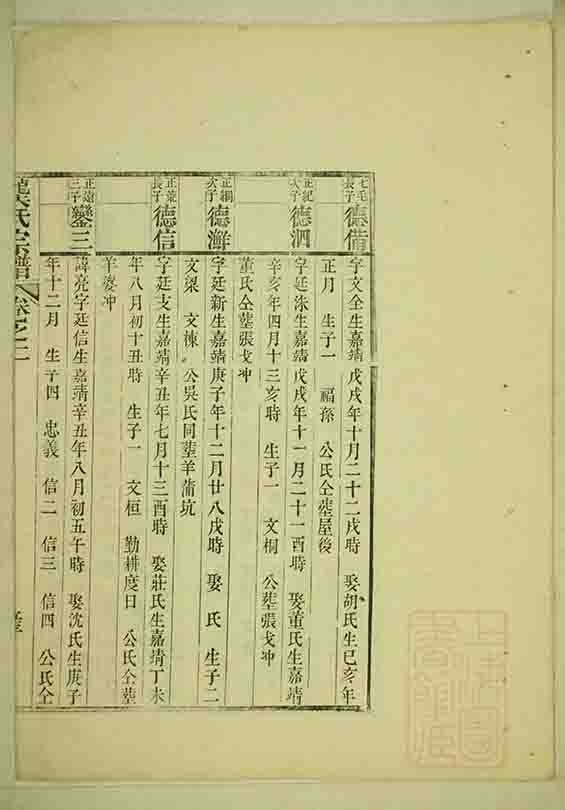 七毛長子 德備 字文全生嘉靖戊戌年十月二十二戌時 娶胡氏生己亥年
正月 生子一 福孫 公氏仝塟屋後
正紀次子 德泗 字廷洙生嘉靖戊戌年十一月二十一酉時 娶董氏生嘉靖
辛亥年四月十三亥時 生子一 文桐 公塟張戈冲
董氏仝塟張戈冲
正綱次子 德澥 字廷新生嘉靖庚子年十二月廿八戌時 娶 氏 生子二
文梁 文棟 公吳氏同塟羊蒲坑
正業長子 德信 字廷支生嘉靖辛丑年七月十三酉時 娶莊氏生嘉靖丁未
年八月初十丑時 生子一 文桓 勤耕度日 公氏仝塟
羊婆冲
正遠三子 鑾三 諱亮字廷信生嘉靖辛丑年八月初五午時 娶沈氏生庚子
年十二月 生子四 忠義 信二 信三 信四 公氏仝
氏宗譜 卷之二
上海圖書館藏